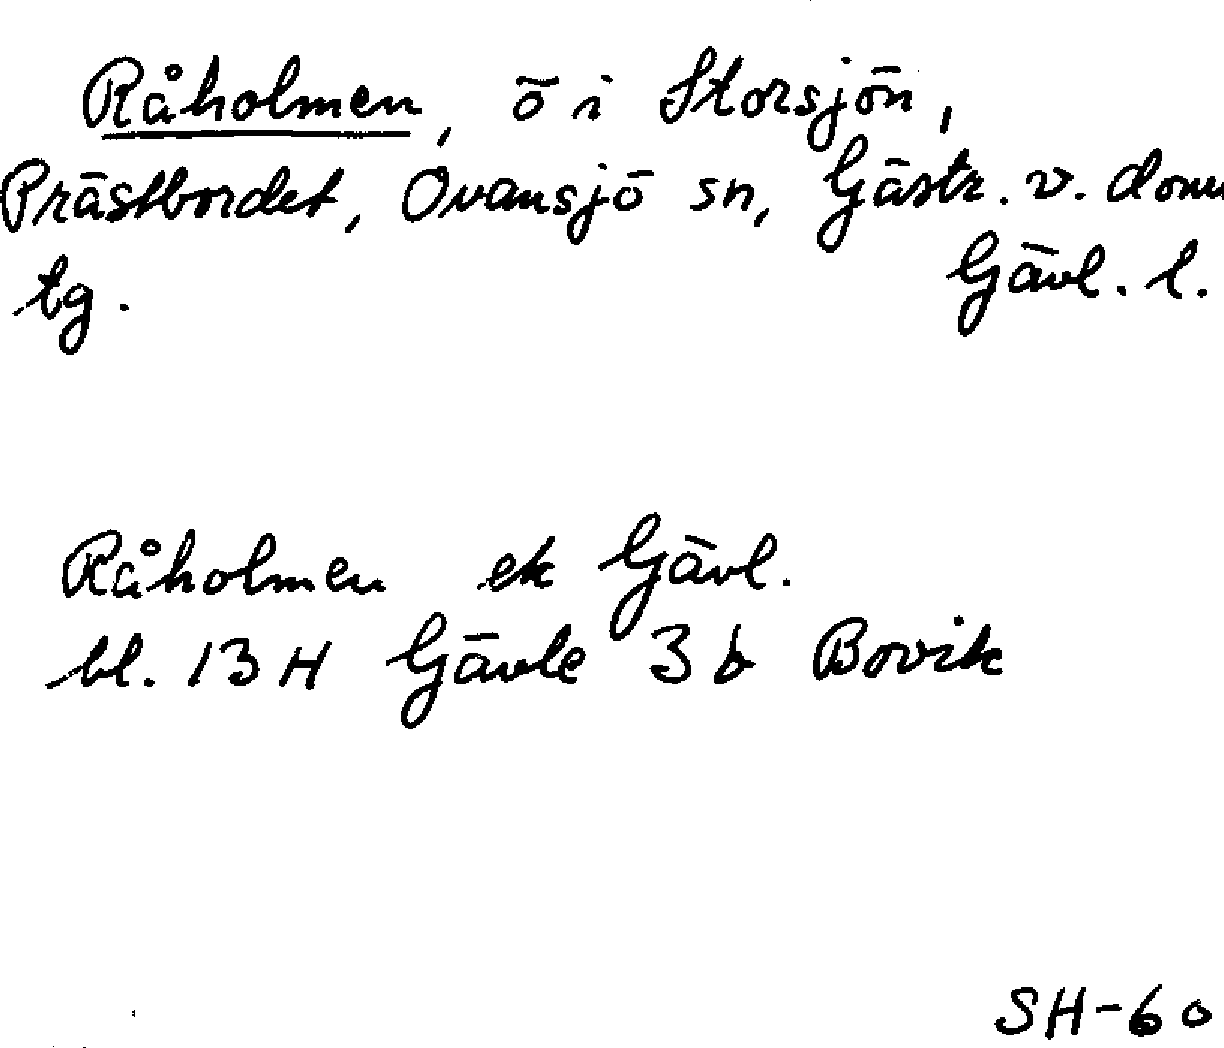 Råholmen, ö i Storsjön,
Prästbordet, Ovansjö sn, Gästr. v. doms
tg. Gävl. l.
Råholmen ek Gävl.
bl. 13 H Gävle 3 b Bovik
SH-60